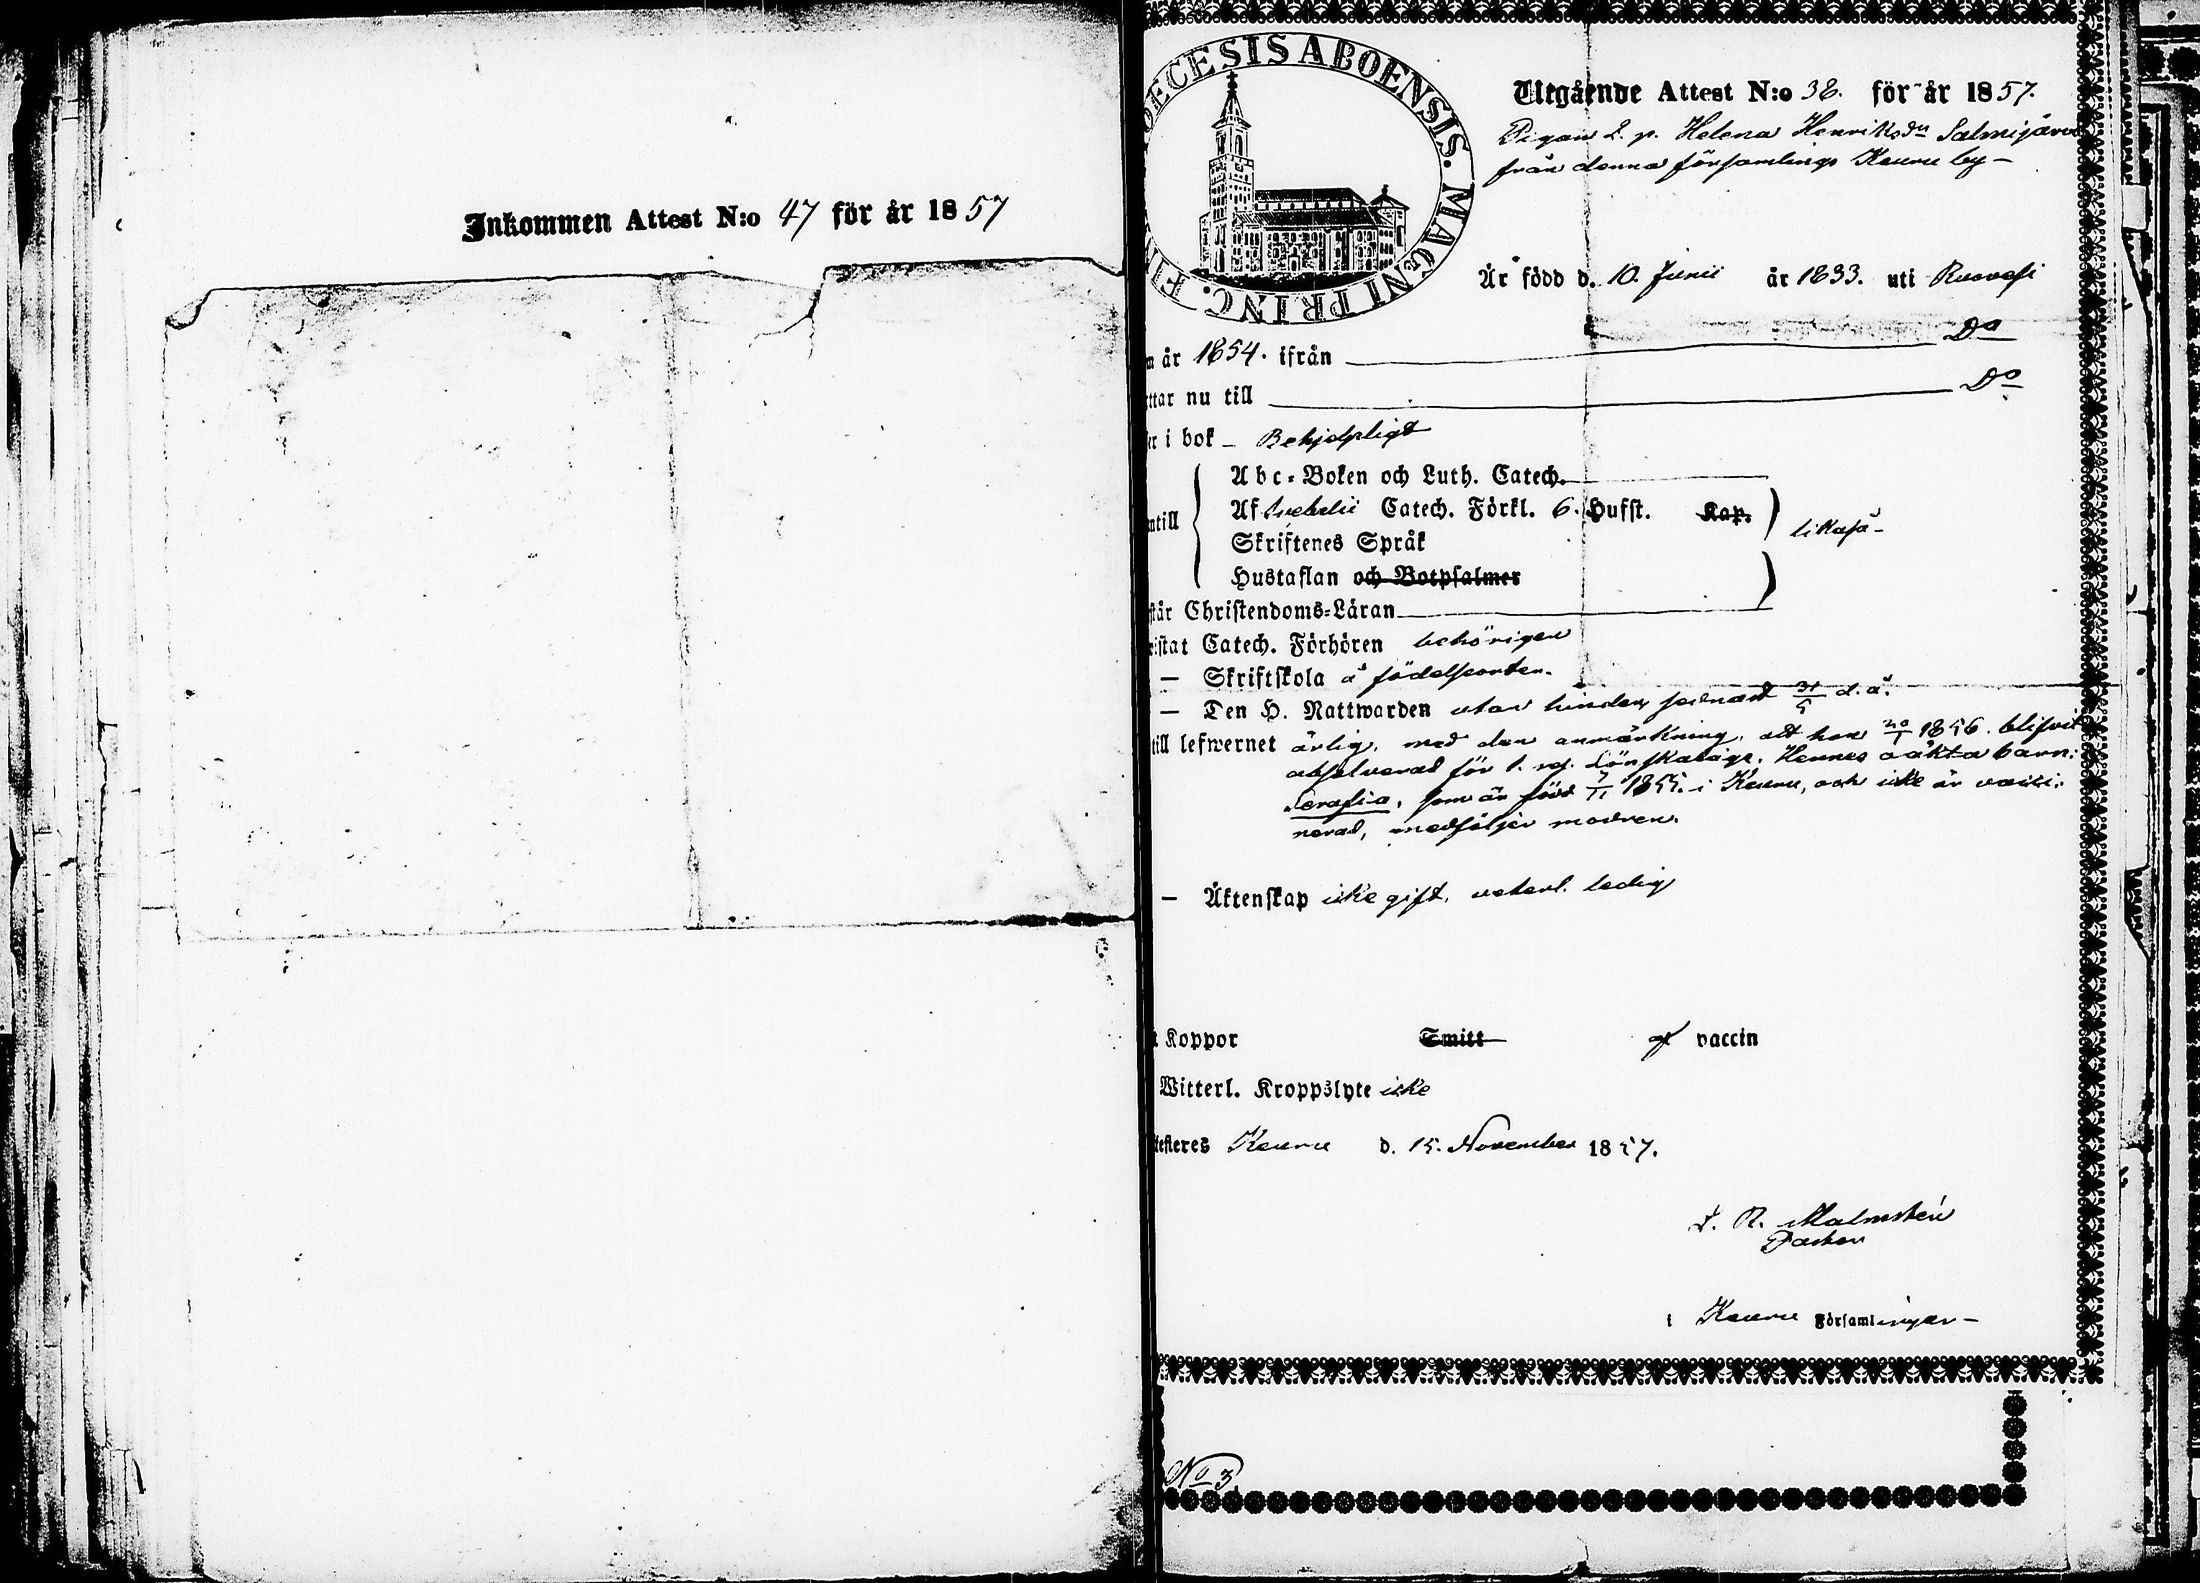 Inkommen Attest N:o 47 för år 1857
DECESIS ABOENSIS. MAGNI PRINC. F
Utgående Attest N:o 38. för år 1857.
Pigan Helena Henriksdr Salmijärvi
från denna församlings Keuru by –
Är född d. 10. Junii år 1833. uti Ruovesi
år 1854. ifrån Do
ttar nu till Do
i bok – Behjelpligt
Abc-Boken och Luth. Catech.
Af Svebelii Catech. Förkl. 6. Hufst. Kap.
ntill
likaså –
Skriftenes Språk
Hustaflan och Botpsalmer
står Christendoms-Läran
istat Catech. Förhören behörigen
– Skriftskola å födelseorten.
– Den H. Nattwarden utan hinder, sednast 31/5 d. å.
till lefwernet ärlig, med den anmärkning, att hon 20/1 1856. blifvit
absolverad för 1. Lönskaläge. Hennes oäkta barn:
Serafia, som är född 7/11 1855. i Keuru, och icke är vacci-
nerad, medföljer modren.
– Äktenskap icke gift, veterl. ledig
Koppor Smitt af vaccin
Witterl. Kroppslyte icke
testeres Keuru d. 15. November 1857.
Malmstén
Pastor
i Keuru Församlingar –
No 3